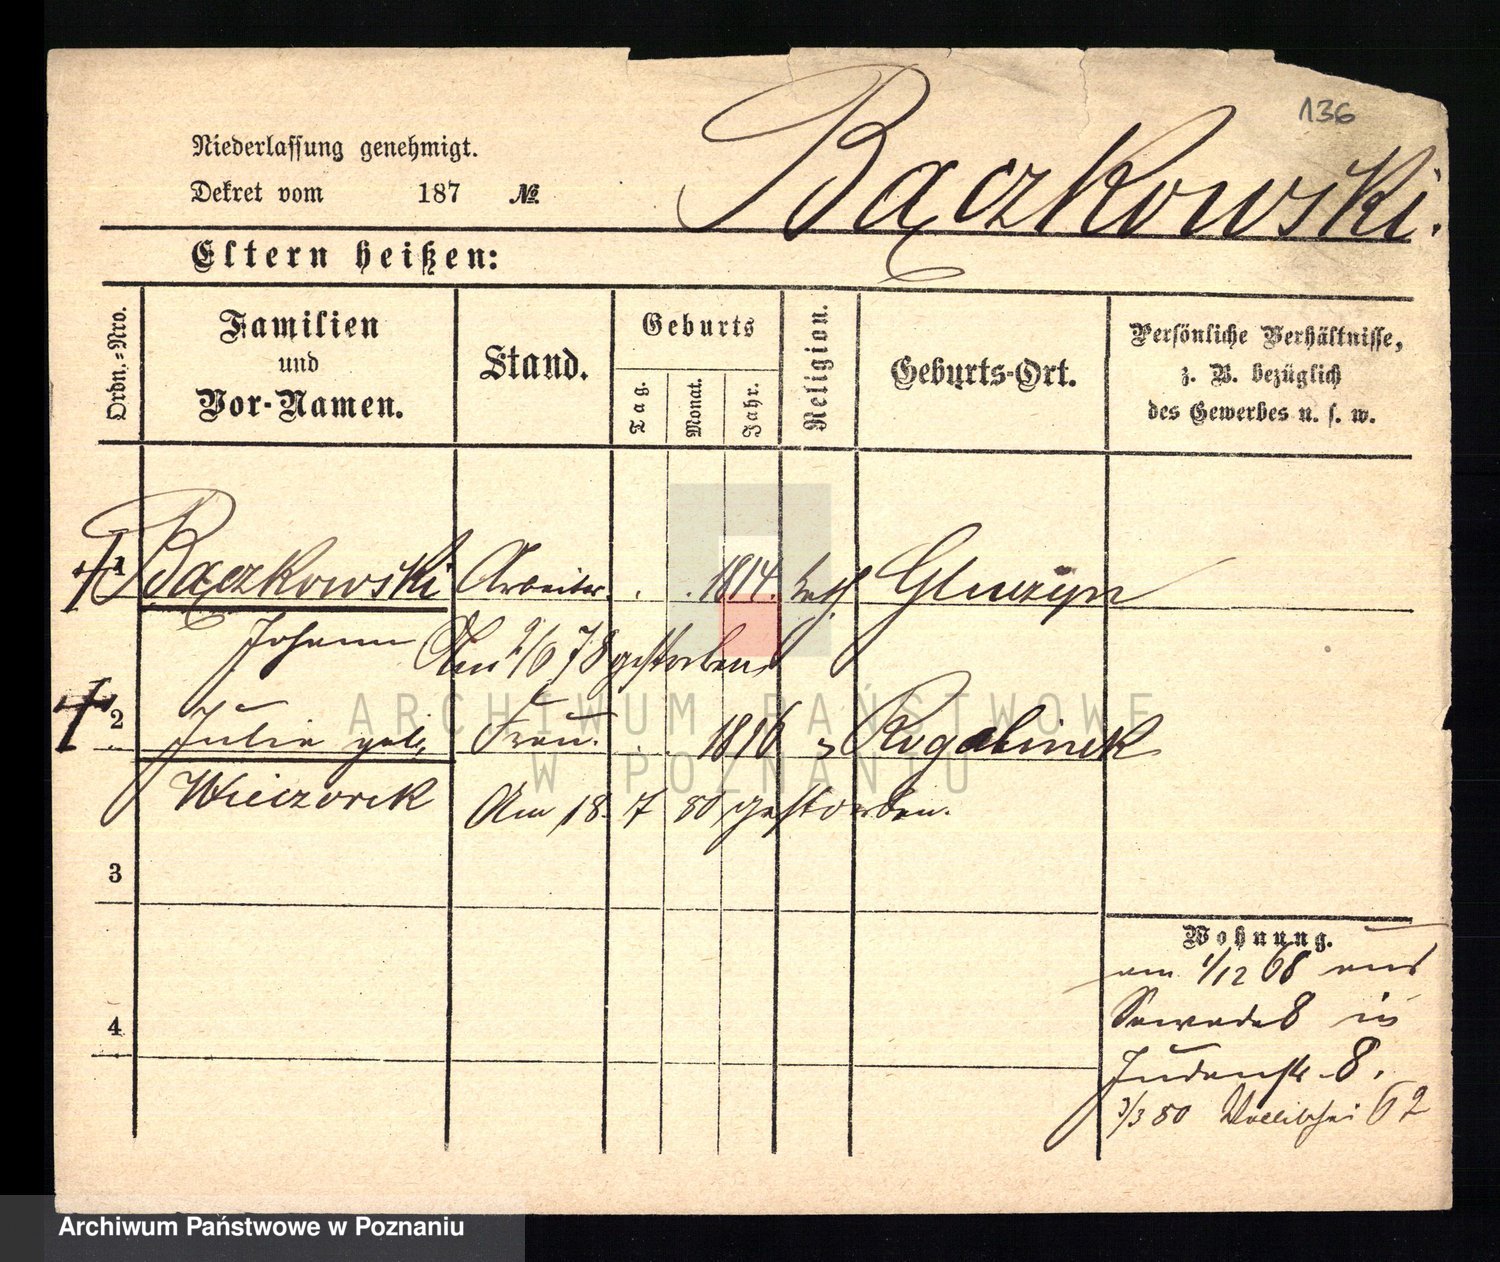 136
Bączkowski.
Niederlassung genehmigt.
Dekret vom 187 №
Eltern heißen:
Ordn.-Nro.
Familien
und
Vor-Namen.
Stand.
Geburts
Tag.
Monat.
Jahr.
Religion.
Geburts-Ort.
Persönliche Verhältnisse,
z. B. bezüglich
des Gewerbes u. s. w.
1 Bączkowski Arbeiter. . . 1814. kath Gluszyn
Johann Am 2/6 78 gestorben
2 Julie geb. Frau. . . 1816 " Rogalinek
Wieczorek Am 18. 7 80 gestorben.
3
4
Wohnung.
am 1/12 68 aus
in
Judenstr. 8.
3/3 80 Wallischei 62
ARCHIWUM PAŃSTWOWE
W POZNANIU
Archiwum Państwowe w Poznaniu